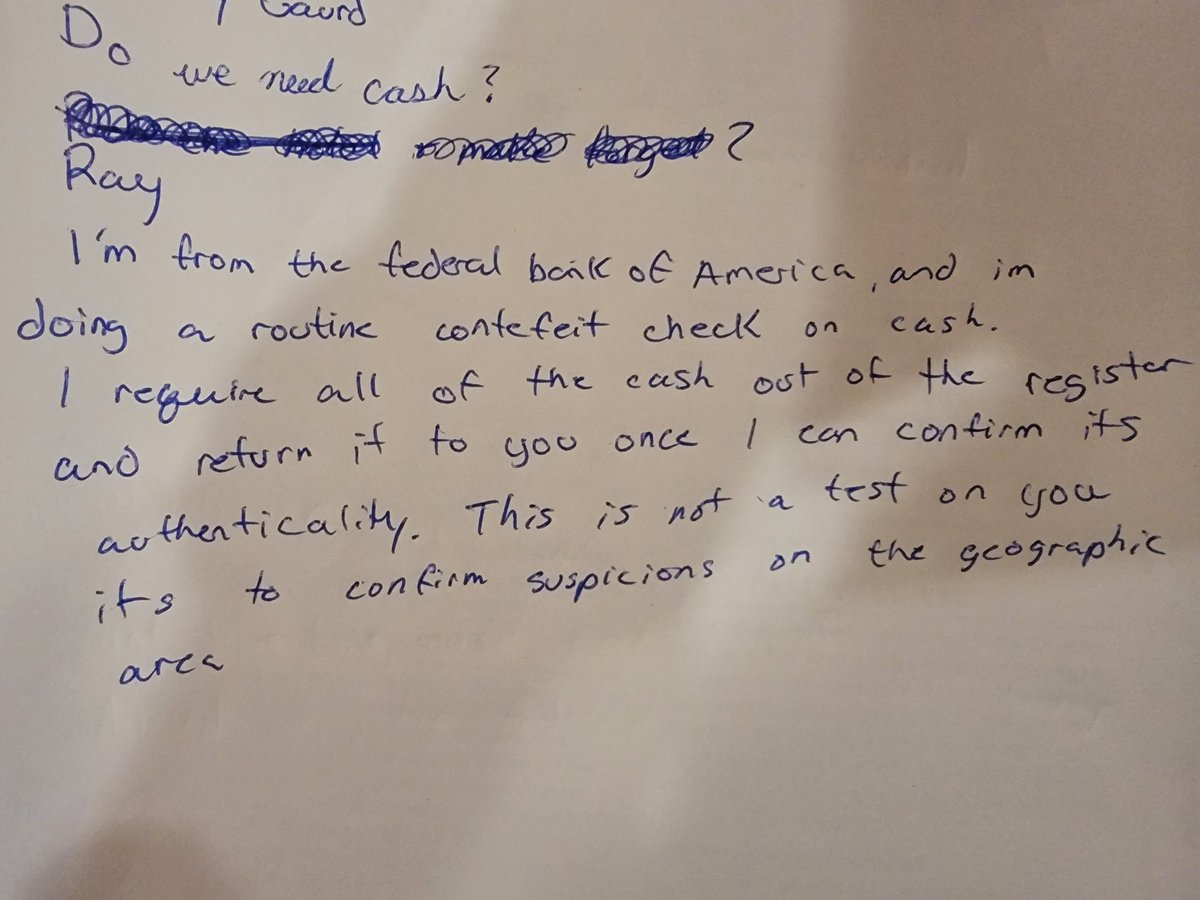 Gaurd
Do we need cash?
?
Ray
I'm from the federal bank of America, and im
doing a routine contefeit check on cash.
I require all of the cash out of the register
and return it to you once I can confirm its
authenticality. This is not a test on you
its to confirm suspicions on the geographic
area